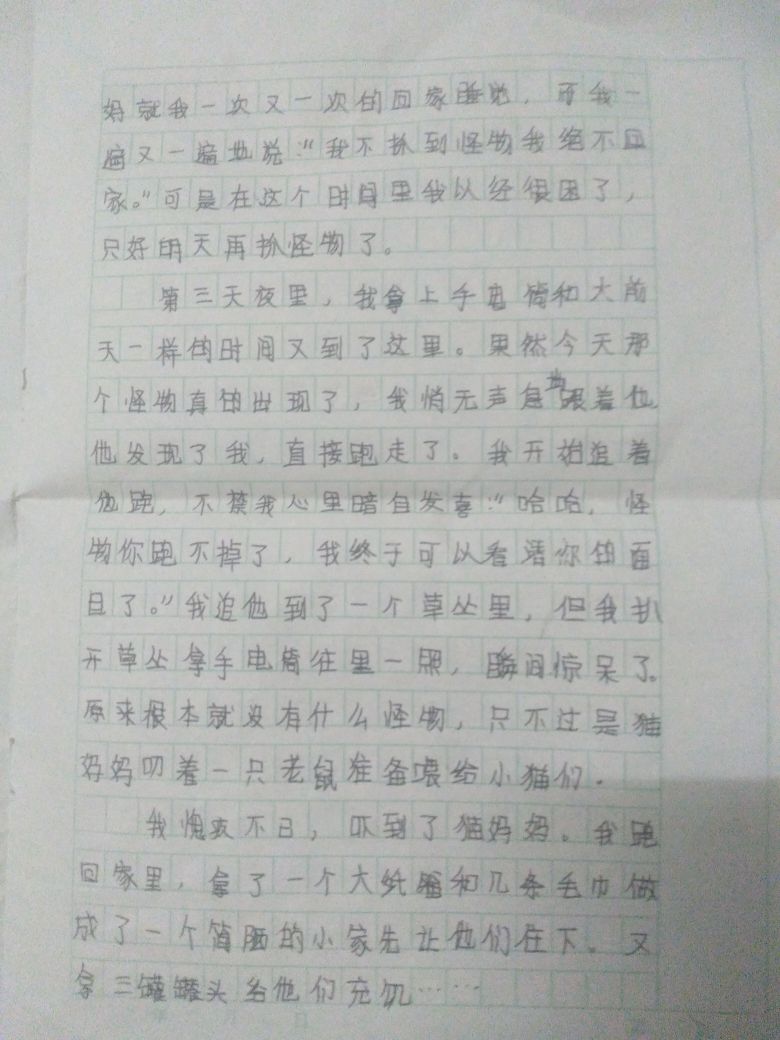 妈就我一次又一次的回家睡觉，可我一
遍又一遍地说：“我不抓到怪物我绝不回
家。”可是在这个时间里我以经很困了，
只好明天再抓怪物了。
第三天夜里，我拿上手电筒和大前
天一样的时间又到了这里。果然今天那
个怪物真的出现了，我悄无声息地跟着他
他发现了我，直接跑走了。我开始追着
他跑，不禁我心里暗自发喜：“哈哈，怪
物你跑不掉了，我终于可以看清你的面
目了。”我追他到了一个草丛里，但我扒
开草丛拿手电筒往里一照，瞬间惊呆了。
原来根本就没有什么怪物，只不过是猫
妈妈叨着一只老鼠准备喂给小猫们.
我愧疚不已，吓到了猫妈妈。我跑
回家里，拿了一个大纸箱和几条毛巾做
成了一个简陋的小家先让他们住下。又
拿三罐罐头给他们充饥……